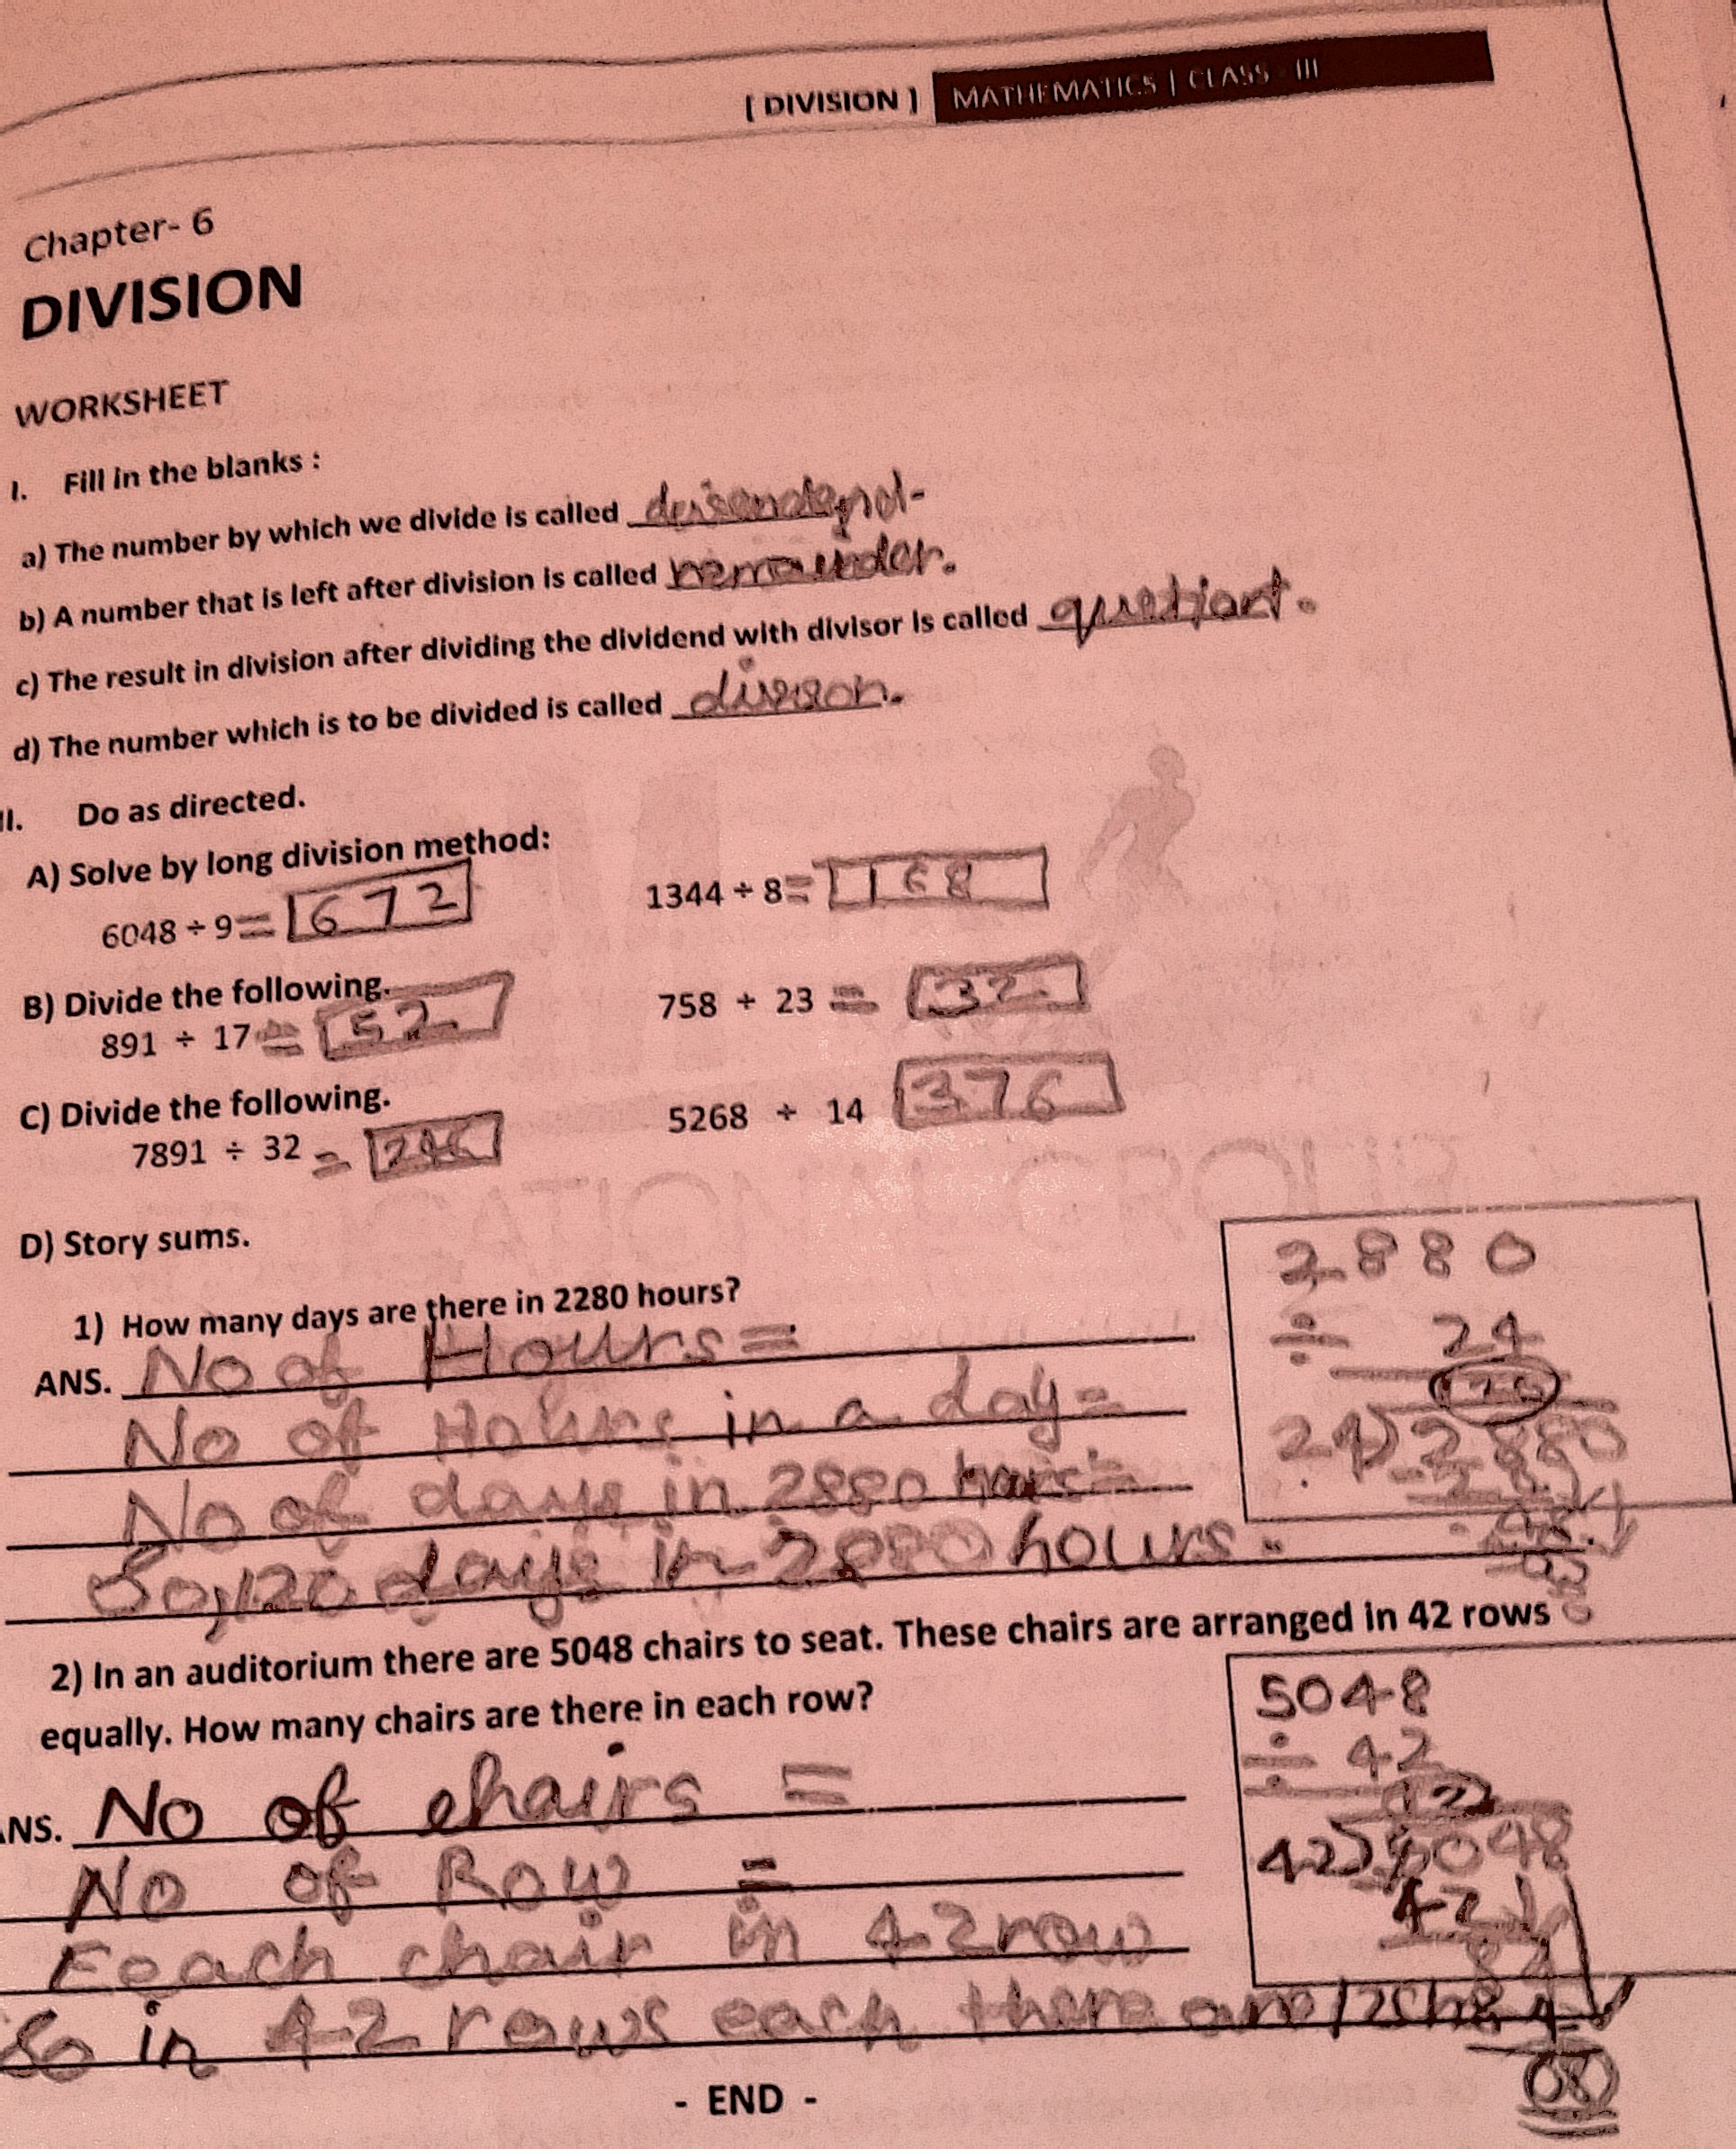 [ DIVISION ] MATHEMATICS | CLASS - III
Chapter- 6
DIVISION
WORKSHEET
I. Fill in the blanks :
a) The number by which we divide is called
b) A number that is left after division is called remainder.
c) The result in division after dividing the dividend with divisor is called
d) The number which is to be divided is called
II. Do as directed.
A) Solve by long division method:
6048 ÷ 9 = 672 1344 ÷ 8 = 168
B) Divide the following.
891 ÷ 17 = 52 758 ÷ 23 = 32
C) Divide the following.
7891 ÷ 32 = 246 5268 ÷ 14 376
D) Story sums.
1) How many days are there in 2280 hours?
ANS. No of Hours =
No of Hours in a day =
No of days in 2880 =
So, 120 days in 2880 hours.
2880
÷ 24
120
24) 2880
2) In an auditorium there are 5048 chairs to seat. These chairs are arranged in 42 rows
equally. How many chairs are there in each row?
ANS. No of chairs =
No of Row =
Eeach chair in 42 row
So in 42 rows each there are
5048
÷ 42
12
42) 5048
42
84
08
- END -